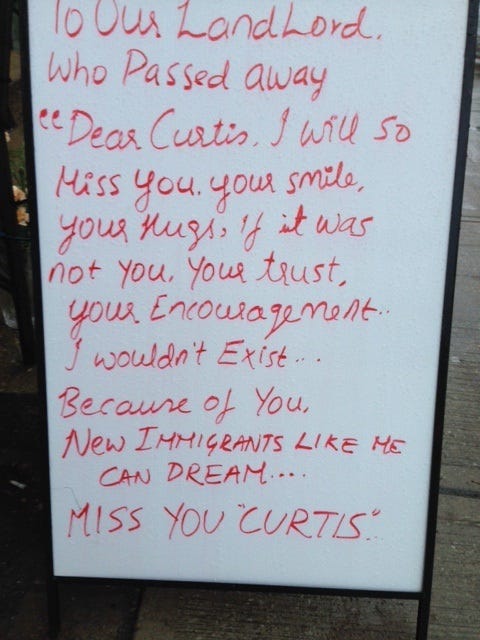 To Our LandLord.
Who Passed away
"Dear Curtis, I will so
Miss You. your smile,
your Hugs, If it was
not you, Your trust,
your Encouragement..
I wouldn't Exist...
Because of You,
New IMMIGRANTS LIKE ME
CAN DREAM....
MISS YOU "CURTIS".